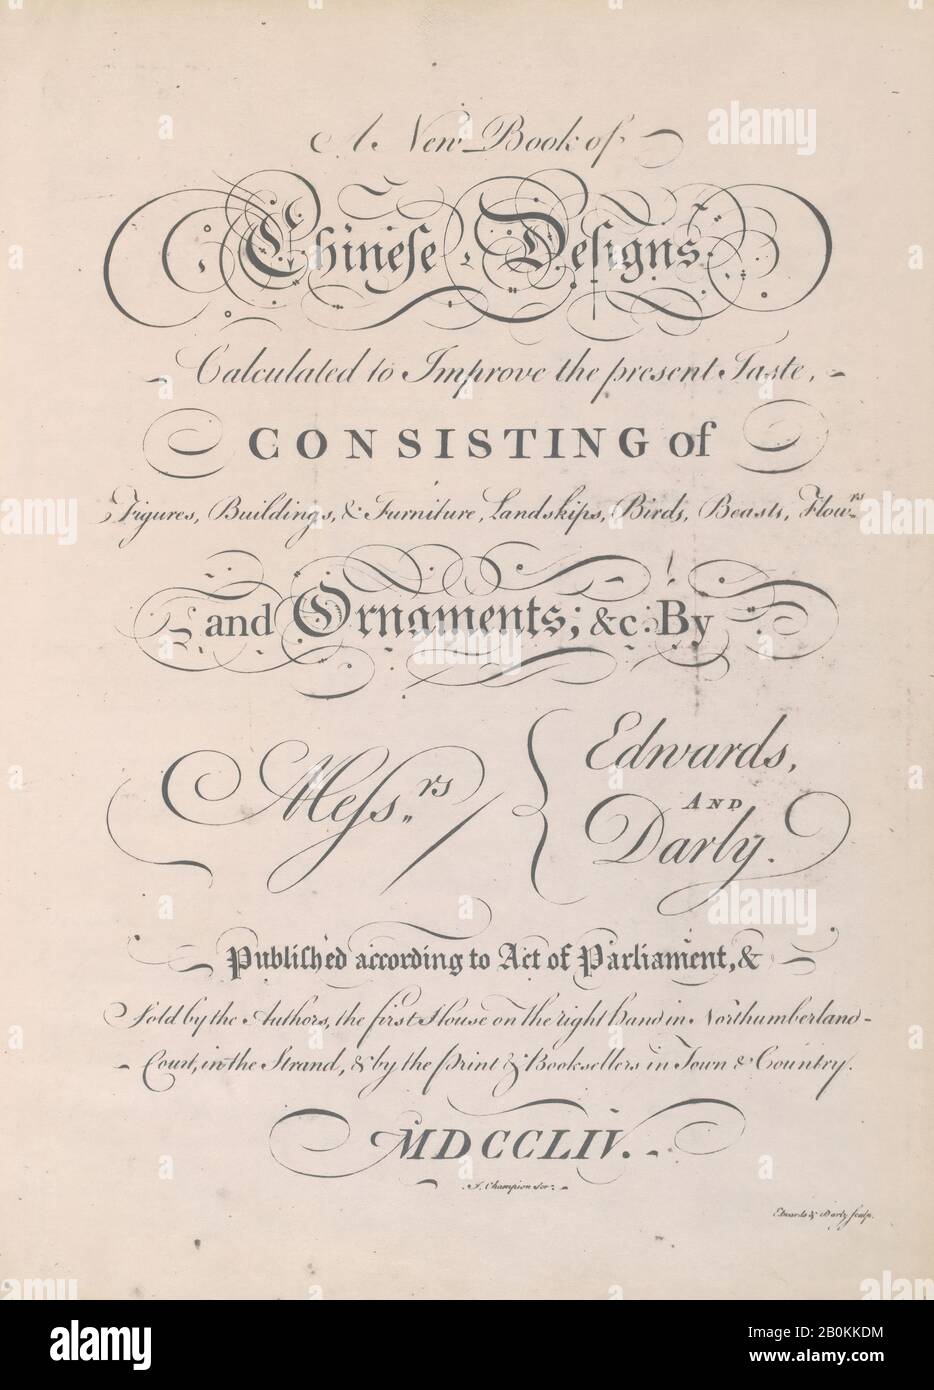 A New Book of
Chineſe Deſigns
Calculated to Improve the present Taste,
CONSISTING of
Figures, Buildings, & Furniture, Landskips, Birds, Beasts, Flowrs
and Ornaments; &c: By
Meſsrs
Edwards,
AND
Darly.
Publiſhed according to Act of Parliament, &
Sold by the Authors, the first House on the right hand in Northumberland-
Court, in the Strand, & by the Print & Booksellers in Town & Country.
MDCCLIV.
J. Champion Scr:
Edwards & Darly ſculp.
alamy
Image ID: 2B0KKDM
www.alamy.com